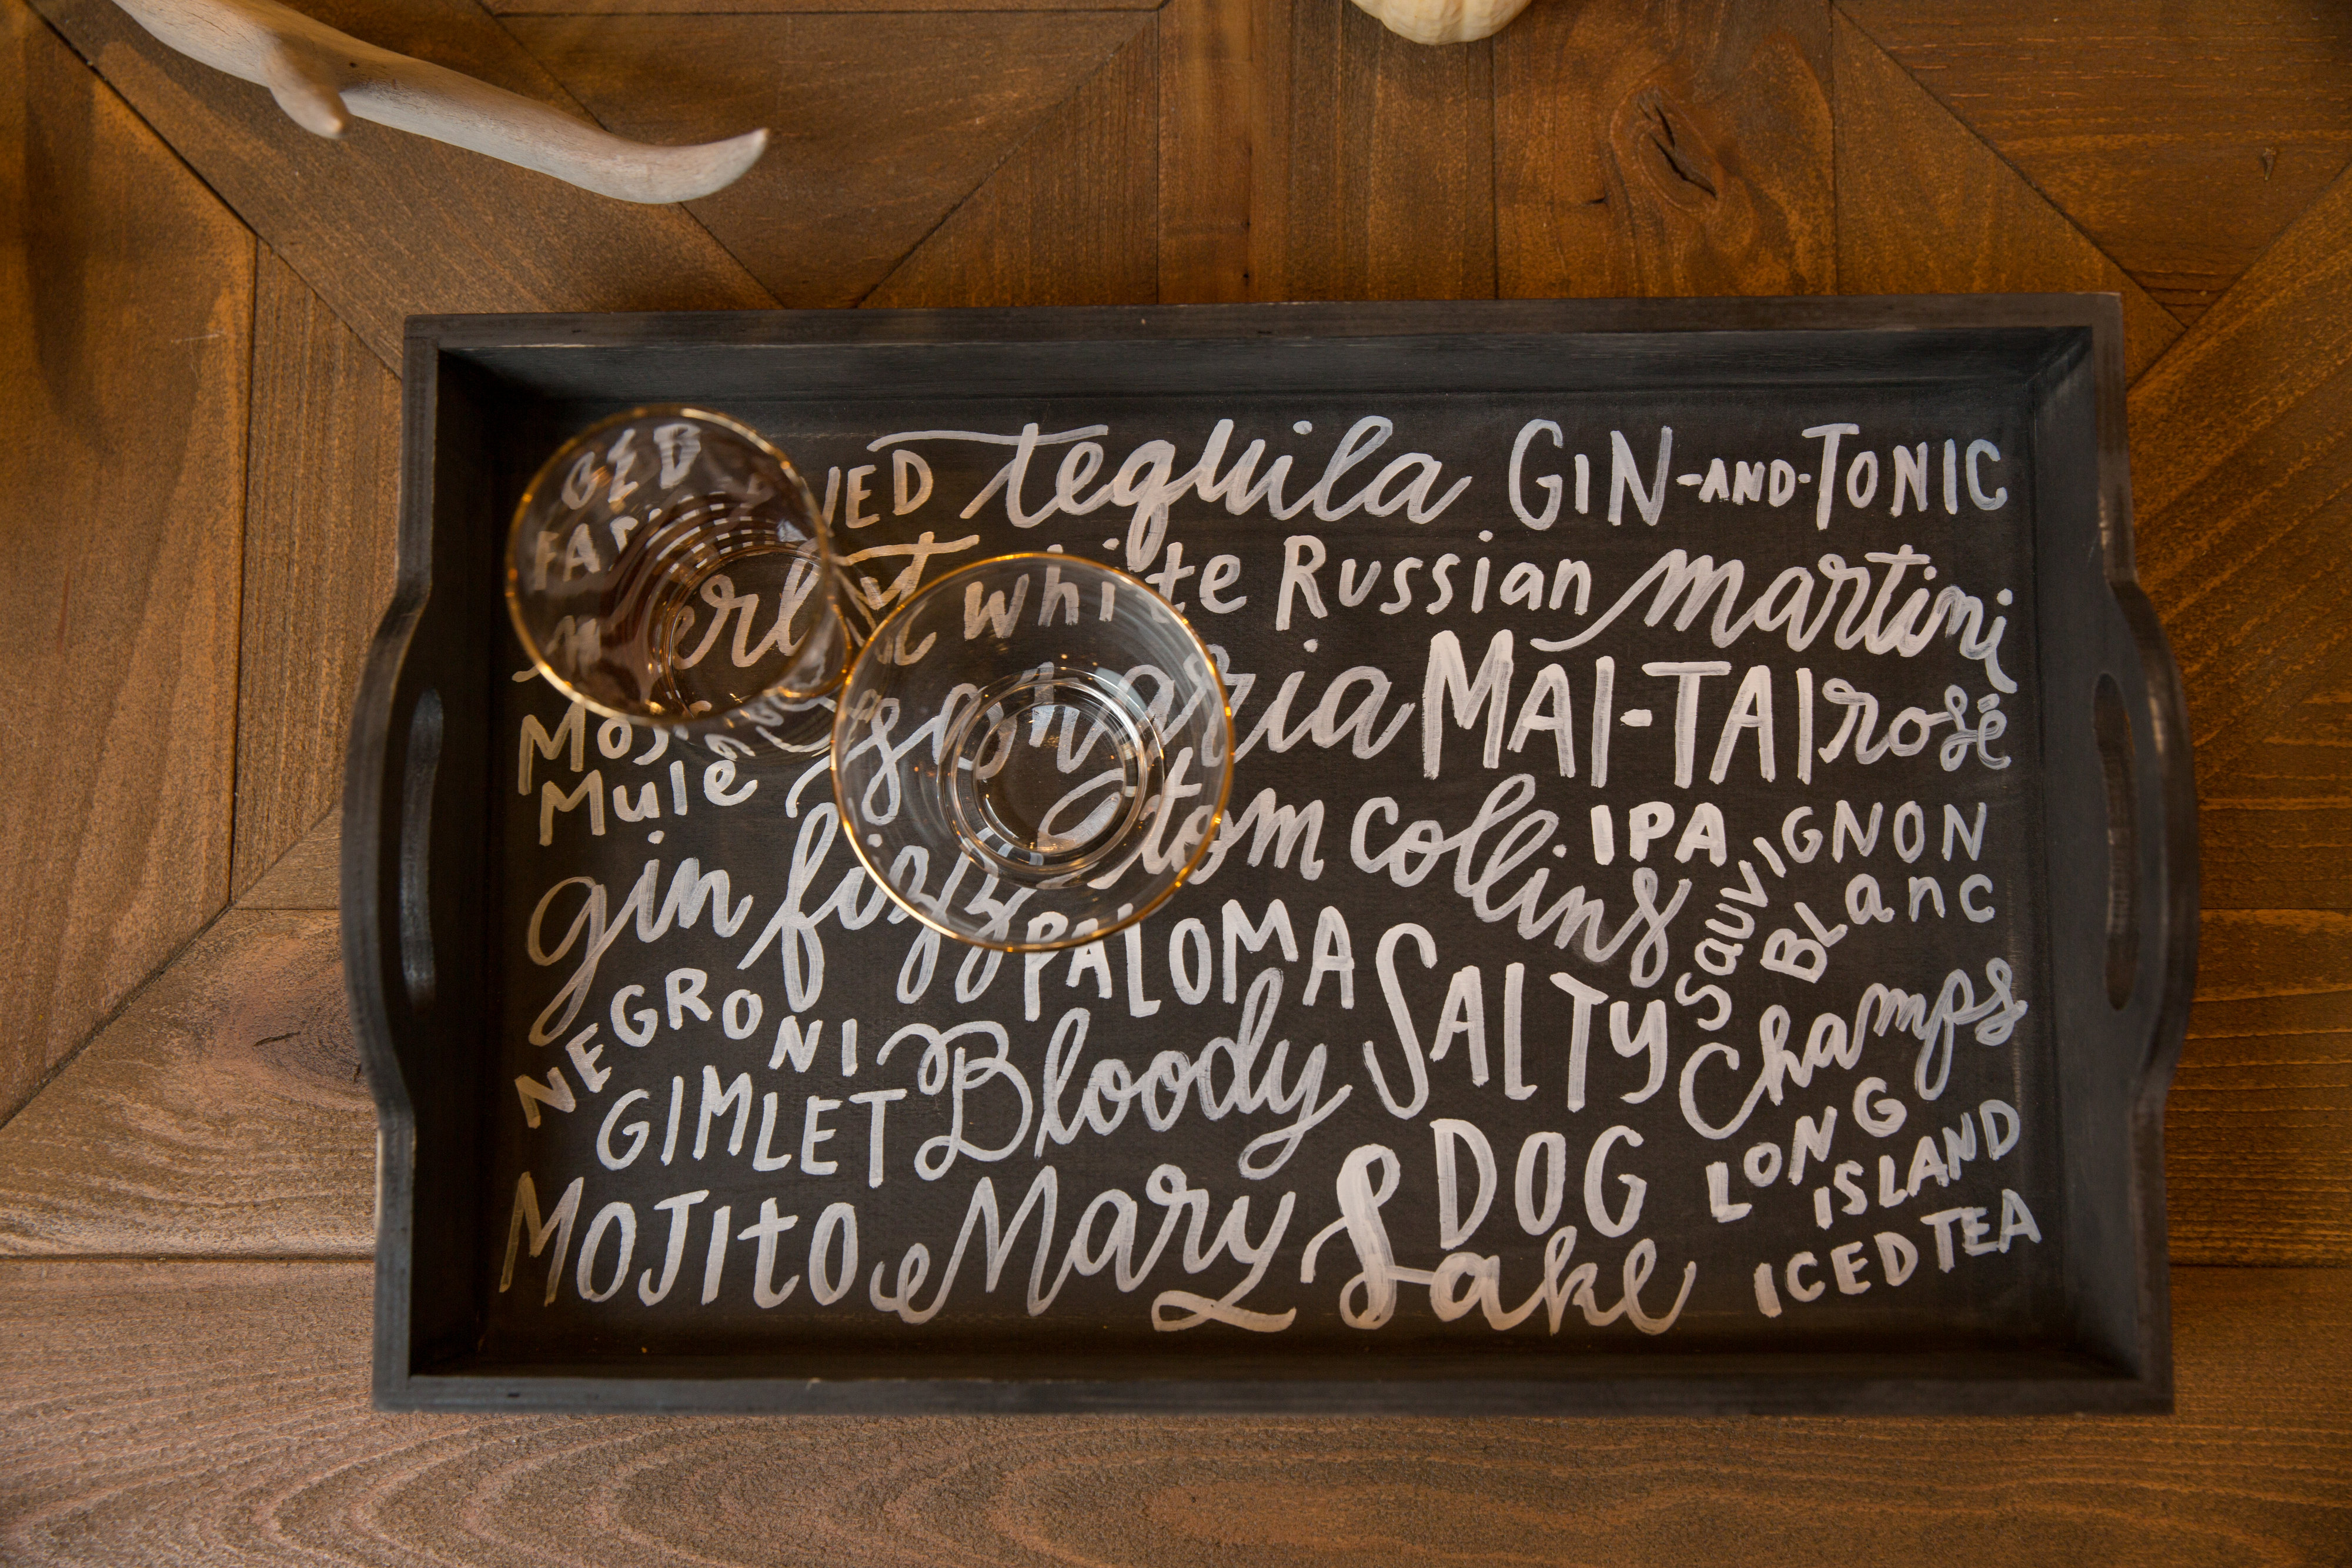 OLD tequila GIN-AND-TONIC
white Russian martini
merlot
MAI-TAI rosé
Mule
gin fizz tom collins IPA SAUVIGNON
BLanc
NEGRONI PALOMA SALTY Champs
GIMLET Bloody DOG LONG
ISLAND
MOJItO Mary Sake ICED TEA